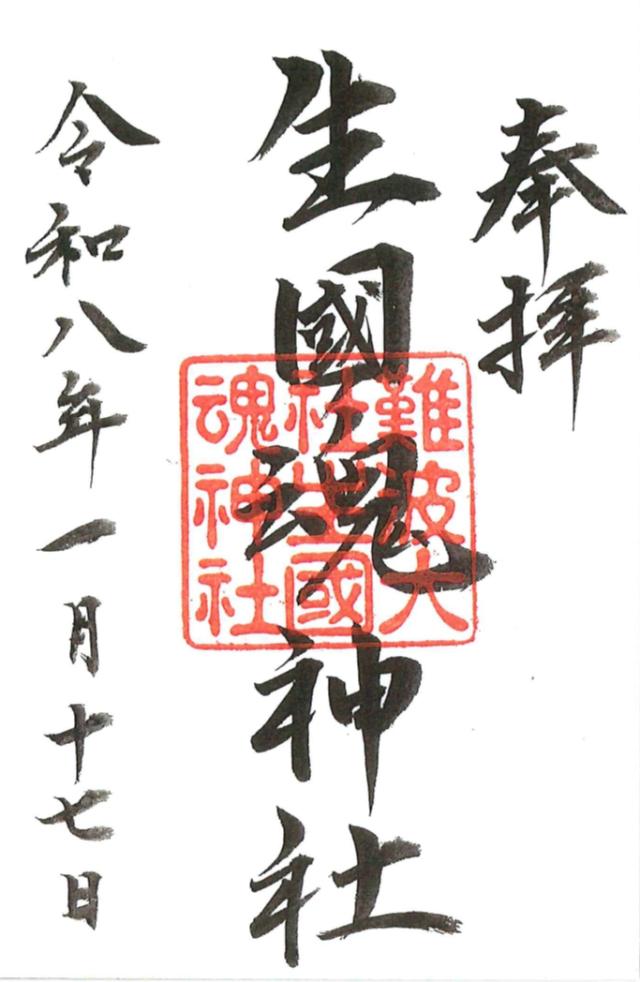 奉拝
生國魂神社
難波大
社生國
魂神社
令和八年一月十七日